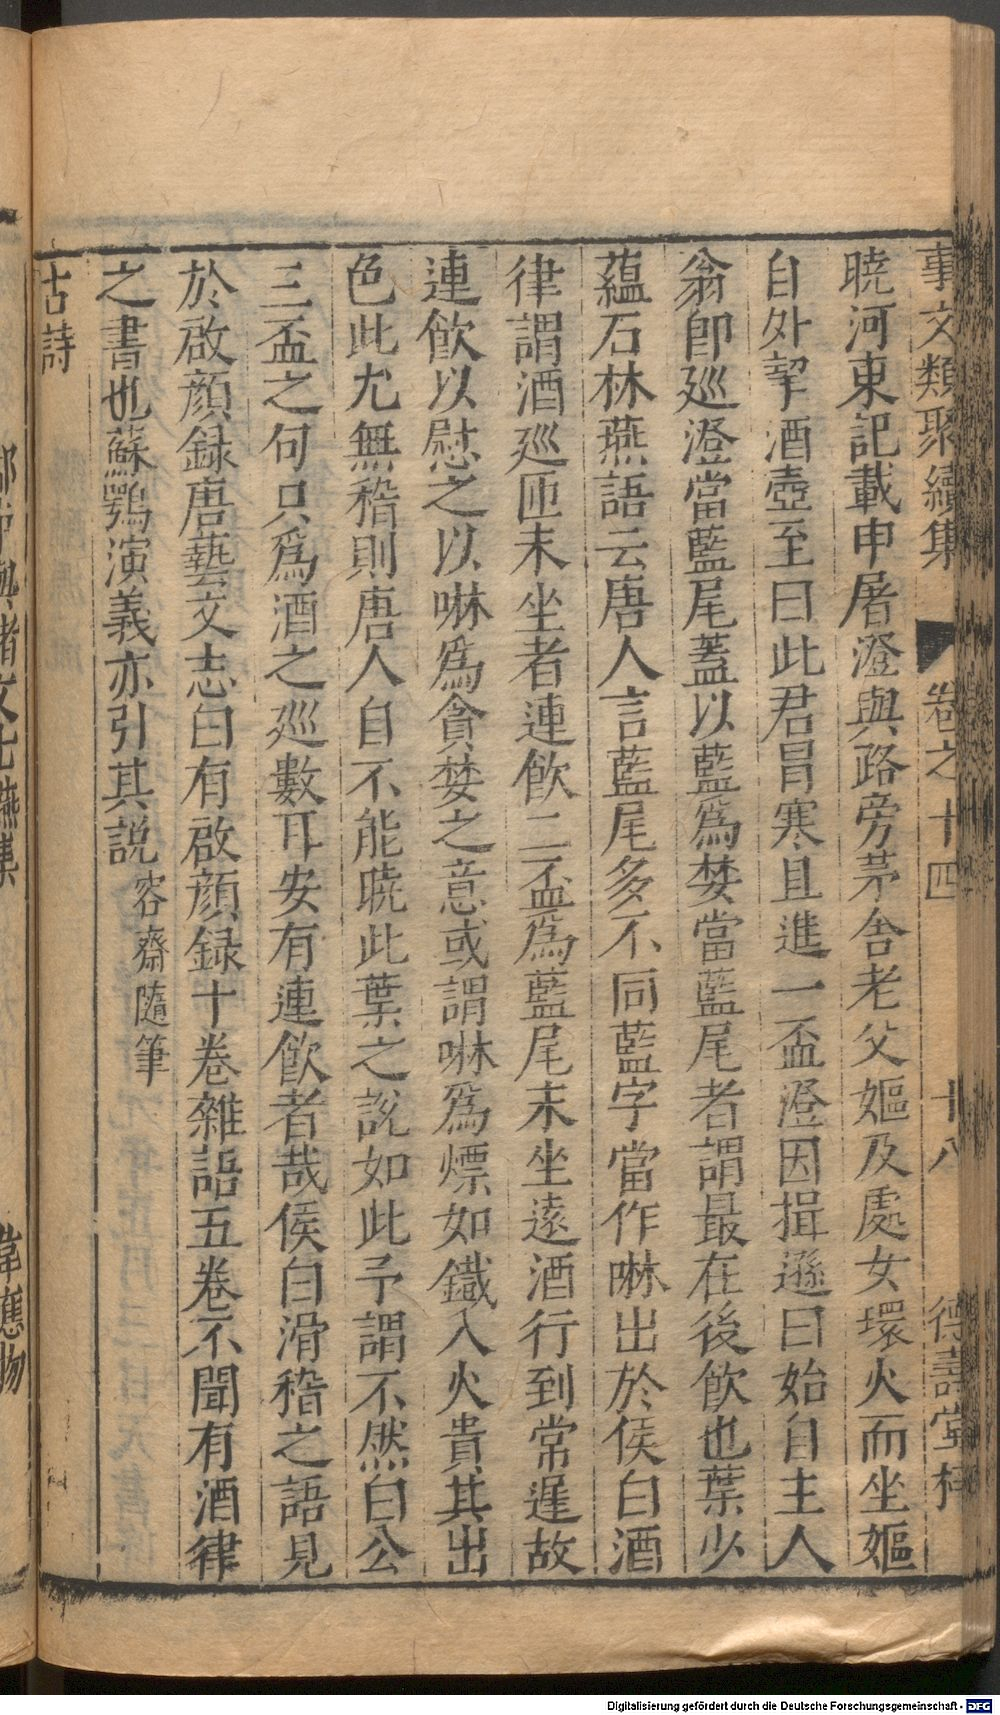 事文類聚續集 卷之十四 十八 德壽堂梓
曉河東記載申屠澄與路旁茅舍老父嫗及處女環火而坐嫗
自外挈酒壺至曰此君冒寒且進一盃澄因揖遜曰始自主人
翁卽廵澄當藍尾蓋以藍爲婪當藍尾者謂最在後飲也葉少
蘊石林燕語云唐人言藍尾多不同藍字當作啉出於侯白酒
律謂酒廵匝末坐者連飲二盃爲藍尾末坐遠酒行到常遲故
連飲以慰之以啉爲貪婪之意或謂啉爲燣如鐡入火貴其出
色此尤無稽則唐人自不能曉此葉之説如此予謂不然白公
三盃之句只爲酒之廵數耳安有連飲者哉侯白滑稽之語見
於啟顔録唐藝文志白有啟顔録十卷雜語五卷不聞有酒律
之書也蘇鶚演義亦引其説容齋隨筆
古詩
韋應物
Digitalisierung gefördert durch die Deutsche Forschungsgemeinschaft - DFG